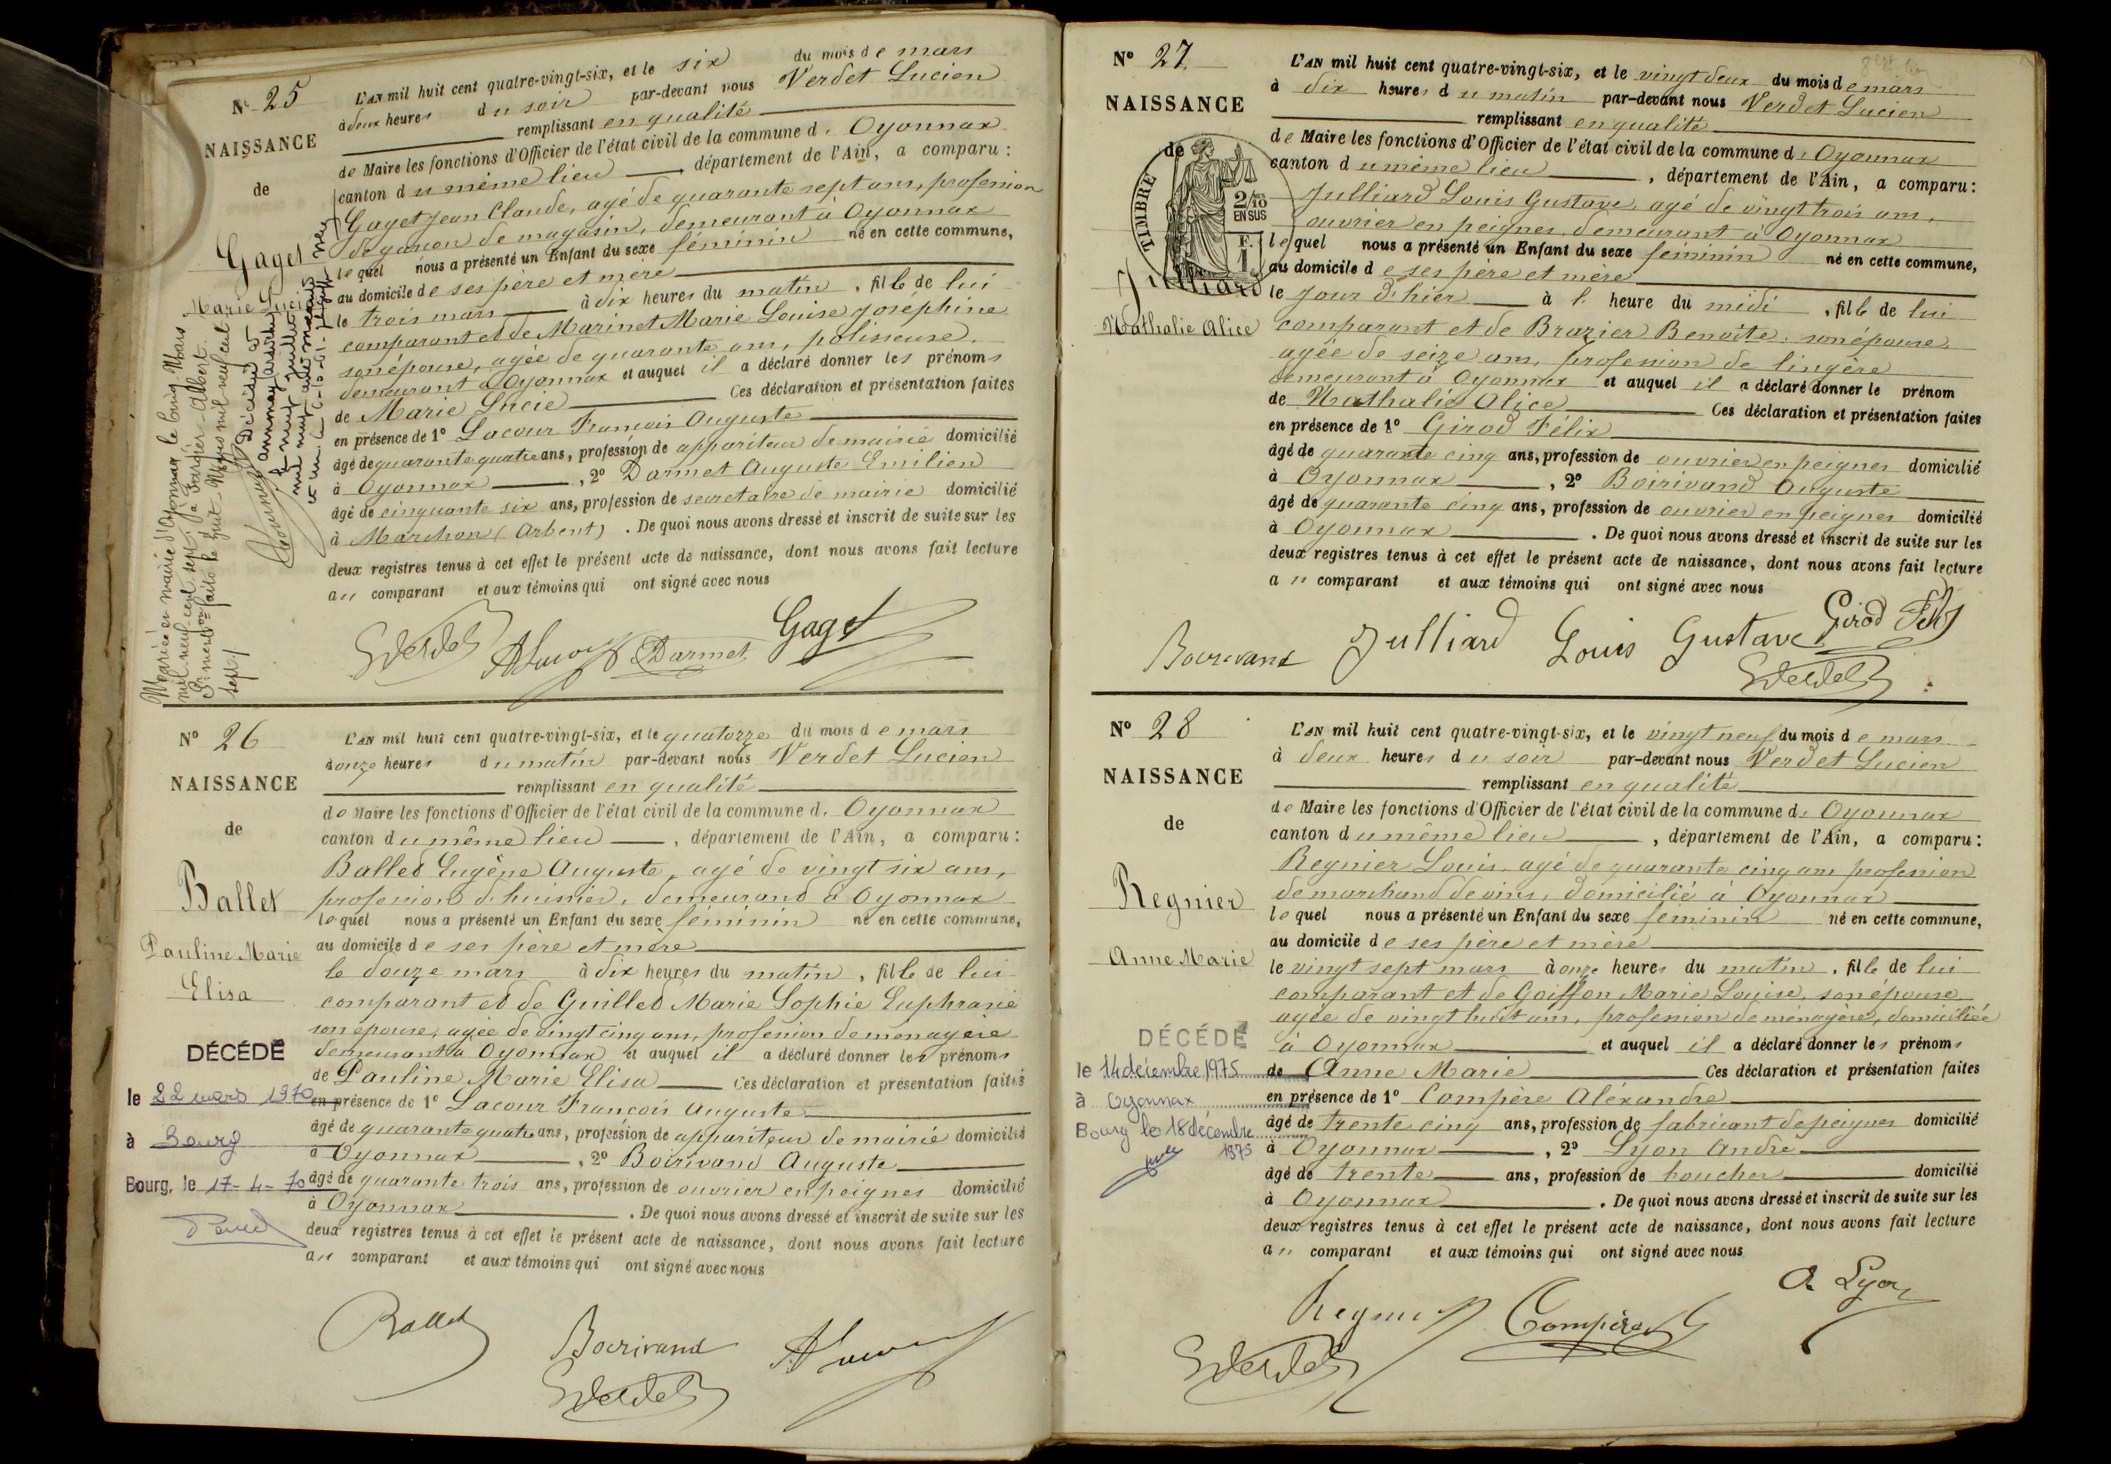 N° 25
NAISSANCE
de
Gaget
Marie Lucie
L'AN mil huit cent quatre-vingt-six, et le six du mois de mars
à deux heures du soir par-devant nous Verdet Lucien
remplissant en qualité
de Maire les fonctions d'Officier de l'état civil de la commune d' Oyonnax
canton du même lieu, département de l'Ain, a comparu :
Gaget Jean Claude, agé de quarante sept ans, profession
de garçon de magasin, demeurant à Oyonnax
lequel nous a présenté un Enfant du sexe féminin né en cette commune,
au domicile de ses père et mère
le trois mars à dix heures du matin, fille de lui
comparant et de Marinet Marie Louise Joséphine
son épouse, agée de quarante ans, polisseuse,
demeurant à Oyonnax et auquel il a déclaré donner les prénoms
de Marie Lucie Ces déclaration et présentation faites
en présence de 1° Lacour François Auguste
âgé de quarante quatre ans, profession de appariteur de mairie domicilié
à Oyonnax, 2° Darmet Auguste Emilien
âgé de cinquante six ans, profession de secretaire de mairie domicilié
à Marchon (Arbent). De quoi nous avons dressé et inscrit de suite sur les
deux registres tenus à cet effet le présent acte de naissance, dont nous avons fait lecture
au comparant et aux témoins qui ont signé avec nous
Mariée en mairie d'Oyonnax le cinq Mars
mil neuf cent sept, à
Albert
sept
Décédée à
Annonay
mil neuf
Verdet
Darmet
Gaget
N° 26
NAISSANCE
de
Ballet
Pauline Marie
Elisa
DÉCÉDÉ
le 22 mars 1970
à Bourg
Bourg, le 17-4-70
L'AN mil huit cent quatre-vingt-six, et le quatorze du mois de mars
à onze heures du matin par-devant nous Verdet Lucien
remplissant en qualité
de Maire les fonctions d'Officier de l'état civil de la commune d' Oyonnax
canton du même lieu, département de l'Ain, a comparu :
Ballet Eugène Auguste, agé de vingt six ans,
profession d'huissier, demeurant à Oyonnax
lequel nous a présenté un Enfant du sexe féminin né en cette commune,
au domicile de ses père et mère
le douze mars à dix heures du matin, fille de lui
comparant et de Guillet Marie Sophie Euphrasie
son épouse, agée de vingt cinq ans, profession de ménagère
demeurant à Oyonnax et auquel il a déclaré donner les prénoms
de Pauline Marie Elisa Ces déclaration et présentation faites
en présence de 1° Lacour François Auguste
âgé de quarante quatre ans, profession de appariteur de mairie domicilié
à Oyonnax, 2° Boirivand Auguste
âgé de quarante trois ans, profession de ouvrier en peignes domicilié
à Oyonnax. De quoi nous avons dressé et inscrit de suite sur les
deux registres tenus à cet effet le présent acte de naissance, dont nous avons fait lecture
au comparant et aux témoins qui ont signé avec nous
Ballet
Boirivand
Verdet
N° 27
NAISSANCE
de
TIMBRE
2/10
EN SUS
F.
1
Julliard
Nathalie Alice
L'AN mil huit cent quatre-vingt-six, et le vingt deux du mois de mars
à dix heures du matin par-devant nous Verdet Lucien
remplissant en qualité
de Maire les fonctions d'Officier de l'état civil de la commune d' Oyonnax
canton du même lieu, département de l'Ain, a comparu :
Julliard Louis Gustave, agé de vingt trois ans,
ouvrier en peignes, demeurant à Oyonnax
lequel nous a présenté un Enfant du sexe féminin né en cette commune,
au domicile de ses père et mère
le jour d'hier à l' heure du midi, fille de lui
comparant et de Brazier Benoite, son épouse,
agée de seize ans, profession de lingère
demeurant à Oyonnax et auquel il a déclaré donner le prénom
de Nathalie Alice Ces déclaration et présentation faites
en présence de 1° Girod Félix
âgé de quarante cinq ans, profession de ouvrier en peignes domicilié
à Oyonnax, 2° Boirivand Auguste
âgé de quarante cinq ans, profession de ouvrier en peignes domicilié
à Oyonnax. De quoi nous avons dressé et inscrit de suite sur les
deux registres tenus à cet effet le présent acte de naissance, dont nous avons fait lecture
au comparant et aux témoins qui ont signé avec nous
Boirivand Julliard Louis Gustave Girod
Verdet
N° 28
NAISSANCE
de
Regnier
Anne Marie
DÉCÉDÉ
le 14 décembre 1975
à Oyonnax
Bourg le 18 décembre
1975
L'AN mil huit cent quatre-vingt-six, et le vingt neuf du mois de mars
à deux heures du soir par-devant nous Verdet Lucien
remplissant en qualité
de Maire les fonctions d'Officier de l'état civil de la commune d' Oyonnax
canton du même lieu, département de l'Ain, a comparu :
Regnier Louis, agé de quarante cinq ans profession
de marchand de vins, domicilié à Oyonnax
lequel nous a présenté un Enfant du sexe féminin né en cette commune,
au domicile de ses père et mère
le vingt sept mars à onze heures du matin, fille de lui
comparant et de Goiffon Marie Louise, son épouse
agée de vingt huit ans, profession de ménagère, domiciliée
à Oyonnax et auquel il a déclaré donner les prénoms
de Anne Marie Ces déclaration et présentation faites
en présence de 1° Compère Aléxandre
âgé de trente cinq ans, profession de fabricant de peignes domicilié
à Oyonnax, 2° Lyon André
âgé de trente ans, profession de boucher domicilié
à Oyonnax. De quoi nous avons dressé et inscrit de suite sur les
deux registres tenus à cet effet le présent acte de naissance, dont nous avons fait lecture
au comparant et aux témoins qui ont signé avec nous
Regnier Compère A Lyon
Verdet